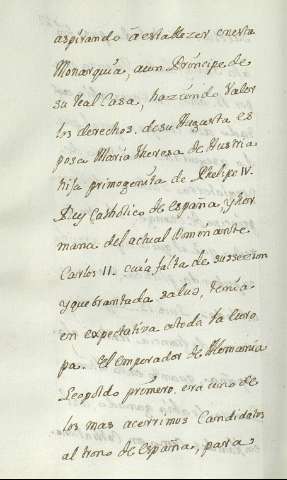 aspirando à establezer en esta
Monarquia, a un Principe de
su Real Casa, haziendo valer
los derechos, de su Augusta es
posa Maria Theresa de Austria
hija primogenita de Phelipe IV.
Rey Catholico de España, y her
mana del actual Dominante
Carlos II. cuia falta de sussecion
y quebrantada salud, tenia
en expectativa a toda la Euro
pa. El emperador de Alemania
Leopoldo primero, era uno de
los mas acerrimos Candidatos
al trono de España, para